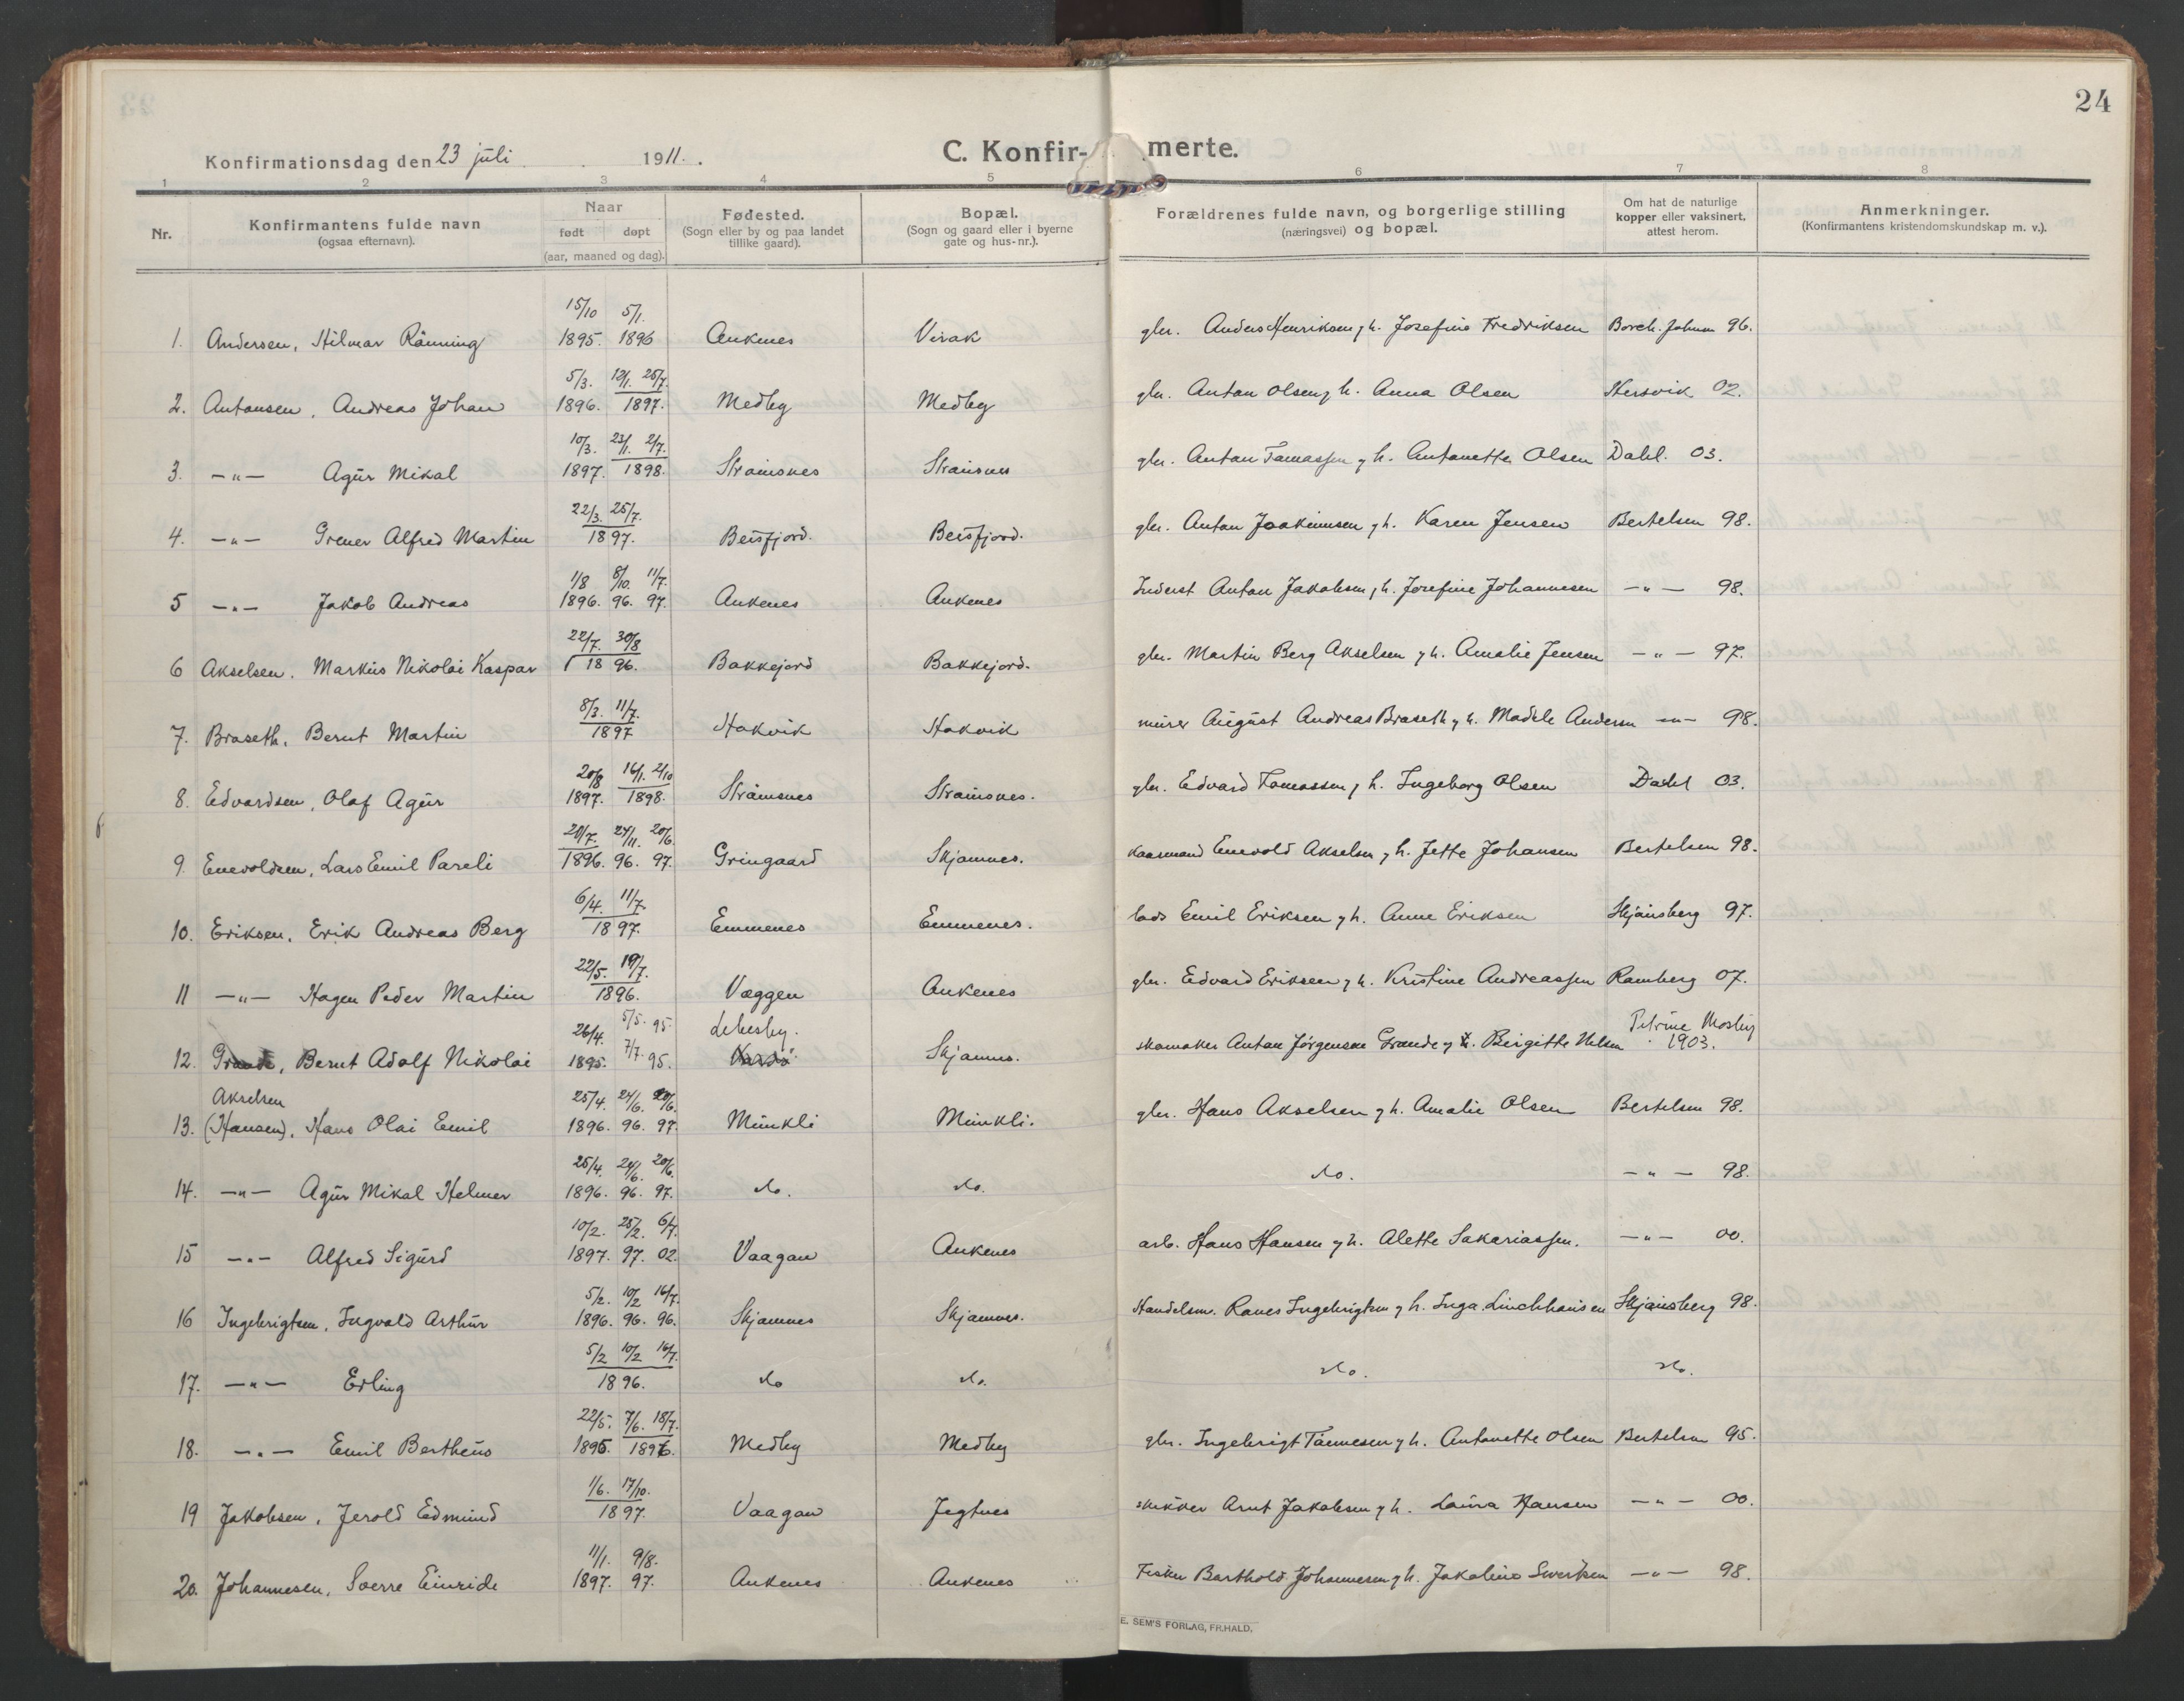 24
Konfirmationsdag den 23 juli 1911.
C. Konfir- merte.
1 2 3 4 5 6 7 8
Nr.
Konfirmantens fulde navn
(ogsaa efternavn).
Naar
født døpt
(aar, maaned og dag).
Fødested.
(Sogn eller by og paa landet
tillike gaard).
Bopæl.
(Sogn og gaard eller i byerne
gate og hus-nr.).
Forældrenes fulde navn, og borgerlige stilling
(næringsvei) og bopæl.
Om hat de naturlige
kopper eller vaksinert,
attest herom.
Anmerkninger.
(Konfirmantens kristendomskundskap m. v.).
15/10 5/1.
1. Andersen, Hilmar Rånning 1895. 1896 Ankenes Virak gbr. Anders Henriksen g h. Josefine Fredriksen Borch. Johnsen 96.
5/3. 12/1. 25/7.
2. Antonsen, Andreas Johan 1896. 1897. Medby Medby gbr. Anton Olsen g h. Anna Olsen Hersvik 02.
10/3. 23/1. 2/7.
3. -"- Agŭr Mikal 1897. 1898. Stramsnes Stramsnes gbr. Anton Tomassen g h. Antonette Olsen Dahl. 03.
22/3. 25/7.
4. -"- Grener Alfred Martin 1897. Beisfjord. Beisfjord. gbr. Anton Joakimsen g h. Karen Jensen Bertelsen 98.
1/8 8/10. 11/7.
5 -"- Jakob Andreas 1896. 96. 97. Ankenes Ankenes Inderst Anton Jakobsen g h. Josefine Johannesen -"- 98.
22/7. 30/8
6 Akselsen. Markŭs Nikolai Kaspar 1896. Bakkejord Bakkejord. gbr. Martin Berg Akselsen g h. Amalie Jensen -"- 97.
8/3. 11/7.
7. Braseth, Bernt Martin 1897 Hakvik Hakvik mŭrer Aŭgŭst Andreas Braseth g h. Madele Andersen -"- 98.
20/8 16/1. 2/10
8. Edvardsen, Olaf Agŭr 1897. 1898. Stramsnes Stramsnes. gbr. Edvard Tomassen g h. Ingeborg Olsen Dahl 03.
20/7. 24/11. 20/6.
9. Enevoldsen, Lars Emil Pareli 1896. 96. 97. Gringaard Skjamnes. Kaarmand Enevold Akselsen g h. Jette Johansen Bertelsen 98.
6/4. 11/7.
10. Eriksen, Erik Andreas Berg 1897. Emmenes Emmenes. lods Emil Eriksen g h. Anne Eriksen Skjånsberg 97.
22/5. 19/7.
11 -"- Hagen Peder Martin 1896. Væggen Ankenes gbr. Edvard Eriksen g h. Kristine Andreassen Ramberg 07.
26/4. 5/5. 95. Lebesby. Petrine Mosby
12. Grande, Bernt Adolf Nikolai 1895. 7/7. 95. Vardö Skjamnes. skomaker Anton Jörgensen Grande g h. Birgitte Nilsen 1903.
Akselsen 25/4. 24/6. 20/6.
13. (Hansen), Hans Olai Emil 1896. 96. 97. Mŭnkli Mŭnkli. gbr. Hans Akselsen g h. Amalie Olsen Bertelsen 98.
25/4. 24/6. 20/6.
14. -"- Agŭr Mikal Helmer 1896. 96. 97. do. do. do. -"- 98.
10/2. 25/2. 6/7.
15 -"- Alfred Sigŭrd 1897. 97. 02. Vaagan Ankenes arb. Hans Hansen g h. Alette Sakariassen. -"- 00.
5/2. 10/2 16/7.
16 Ingebrigtsen, Ingvald Arthŭr 1896. 96. 96. Skjamnes Skjamnes. Handelsm. Ranes Ingebrigtsen g h. Inga Linchhausen Skjånsberg 98.
5/2 10/2 16/7.
17. -"- Erling 1896. do do. do. do.
22/5. 7/6. 18/7.
18. -"- Emil Bertheŭs 1895. 1896. Medby Medby gbr. Ingebrigt Tånnesen g h. Antonette Olsen Bertelsen 95.
1/6. 17/10.
19 Jakobsen, Jerold Edmŭnd 1897. Vaagan Jegtnes snikker Arnt Jakobsen g h. Laŭra Hansen -"- 00.
11/1. 9/8.
20. Johannesen, Sverre Einride 1897. 97. Ankenes Ankenes Fisker Barthold Johannesen g h. Jakoline Sivertsen -"- 98.
E. SEM'S FORLAG, FR.HALD.